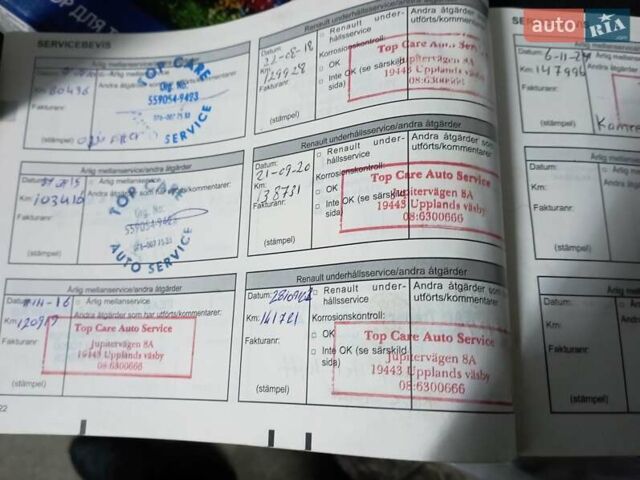 auto RIA
SERVICEBEVIS
Årlig mellanservice/andra åtgärder
Årlig mellanservice
Andra åtgärder som har utförts/kommentarer:
Km: 80436
Fakturanr:
(stämpel)
TOP CARE
Org. No:
559054-9423
SERVICE
Årlig mellanservice/andra åtgärder
Årlig mellanservice
Andra åtgärder som har utförts/kommentarer:
Km: 103410
Fakturanr:
(stämpel)
TOP CARE
Org. No:
559054-9423
AUTO SERVICE
Årlig mellanservice/andra åtgärder
Datum:
Årlig mellanservice
Km: 120919
Andra åtgärder som har utförts/kommentarer:
Fakturanr:
(stämpel)
Top Care Auto Service
Jupitervägen 8A
19443 Upplands väsby
08:6300666
22
Renault underhållsservice/andra åtgärder
Datum: 22-08-18
Renault underhållsservice
Andra åtgärder som utförts/kommentarer:
Km: 129928
Korrosionskontroll:
OK
Inte OK (se särskild sida)
Fakturanr:
(stämpel)
Top Care Auto Service
Jupitervägen 8A
19443 Upplands väsby
08:6300666
Renault underhållsservice/andra åtgärder
Datum: 21-09-20
Renault underhållsservice
Andra åtgärder som utförts/kommentarer:
Km: 138731
Korrosionskontroll:
OK
Inte OK (se särskild sida)
Fakturanr:
(stämpel)
Top Care Auto Service
Jupitervägen 8A
19443 Upplands väsby
08:6300666
Renault underhållsservice/andra åtgärder
Datum:
Renault underhållsservice
Andra åtgärder som utförts/kommentarer:
Km: 141721
Korrosionskontroll:
OK
Inte OK (se särskild sida)
Fakturanr:
(stämpel)
Top Care Auto Service
Jupitervägen 8A
19443 Upplands väsby
08:6300666
Datum:
Km: 147996
Fakturanr:
(stämpel)
Datum:
Km:
Fakturanr:
(stämpel)
Datum:
Km:
Fakturanr:
(stämpel)